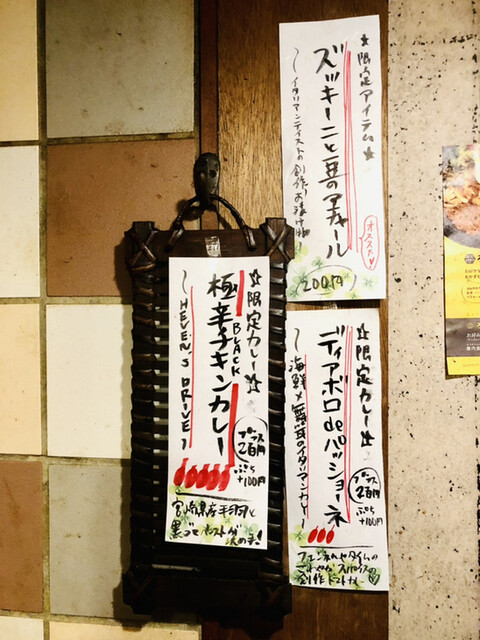 ☆限定アイテム☆
ズッキーニと豆のアチャール
〜イタリアンテイストの創作!お漬け物〜
オススメ
200円
☆限定カレー☆
極辛チキンカレー
BLACK
〜HEVEN'S DRIVE〜
プラス
2百円
ぷち
+100円
宮崎県産手羽と
黒ごまペーストが
決め手!
☆限定カレー☆
ディアボロdeパッショーネ
〜海鮮×舞茸のイタリアンカレー〜
プラス
2百円
ぷち
+100円
スパイスの
創作トマトカレー